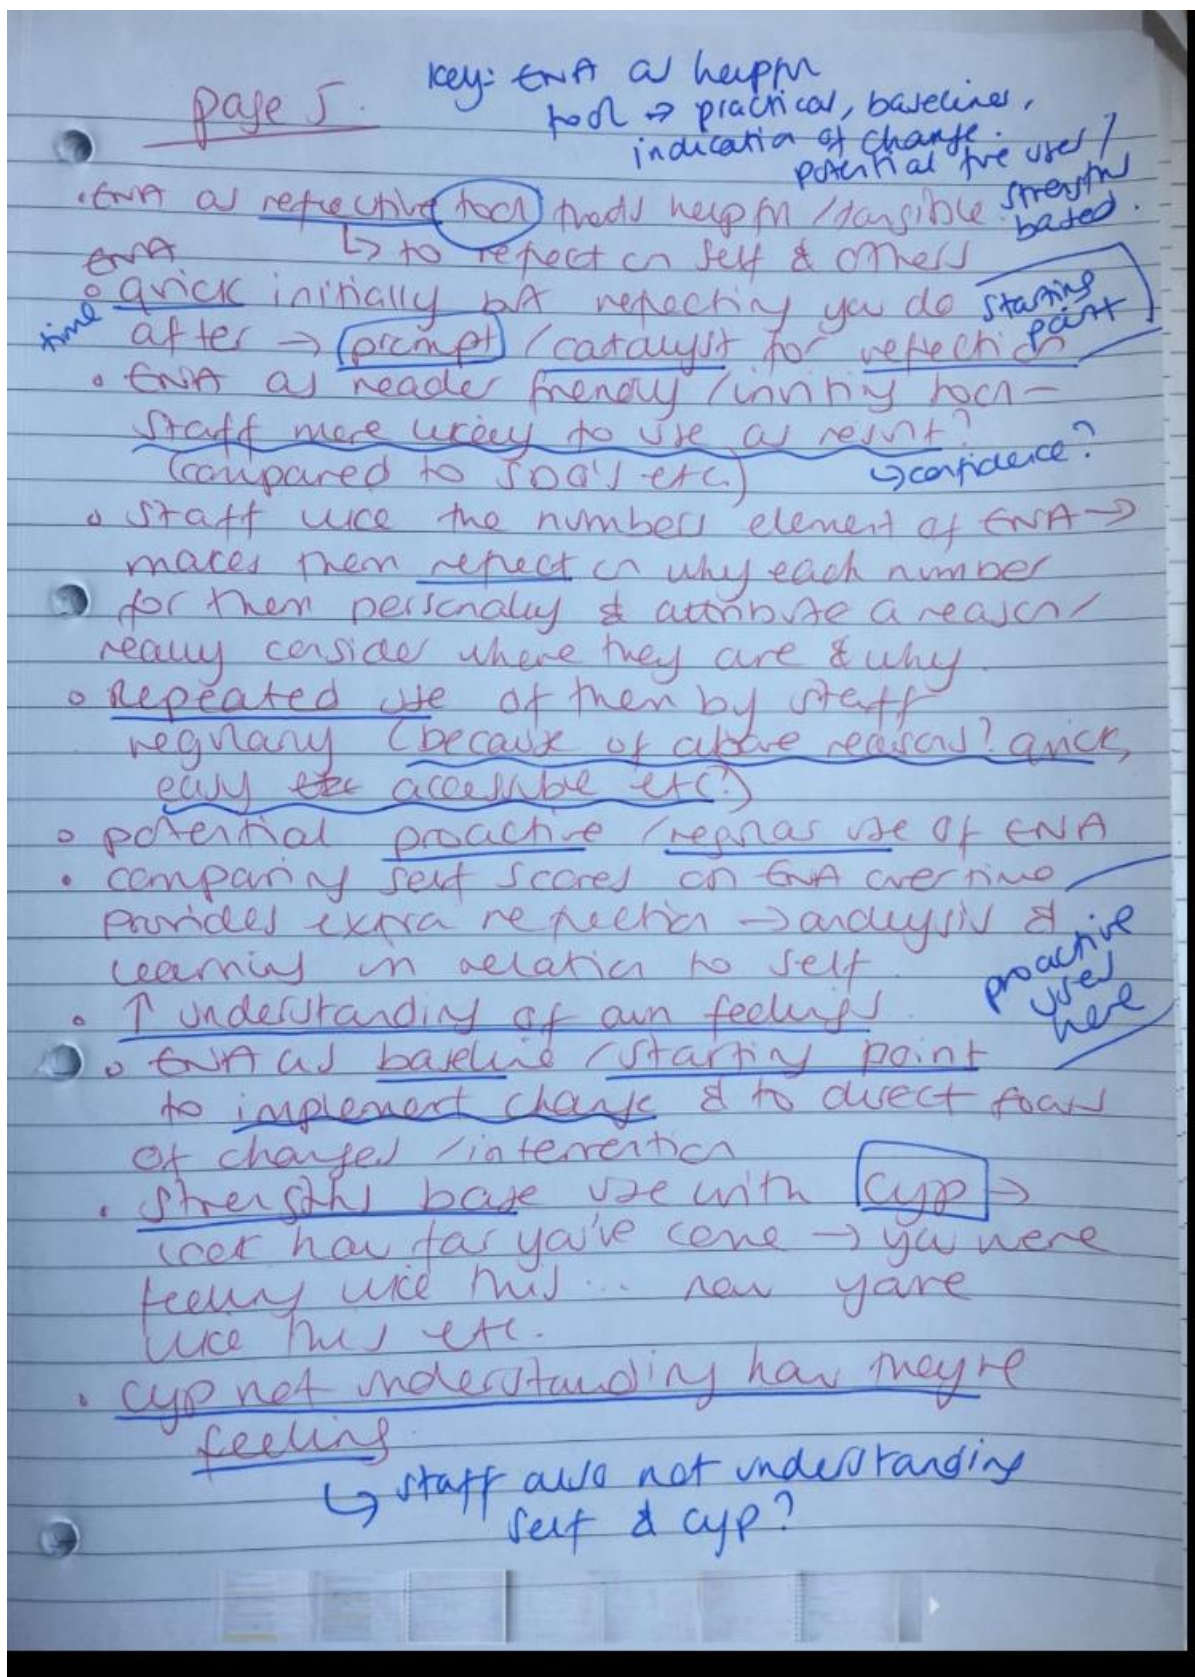 page 5.
key: ENA as helpful
tool → practical, baselines,
indication of change.
potential +ve uses /
strengths
based.
• ENA as reflective tool helpful / tangible
↳ to reflect on self & others
ENA
• quick initially bA reflecting you do
time
starting
point
after → prompt / catalyst for reflection
• ENA as reader friendly / inviting tool –
staff more likely to use as result?
(compared to SDQ's etc.)
↳ confidence?
• Staff like the numbers element of ENA →
makes them reflect on why each number
for them personally & attribute a reason /
really consider where they are & why.
• Repeated use of them by staff
regularly (because of above reasons? quick,
easy etc accessible etc?)
• potential proactive / regular use of ENA
• comparing self scores on ENA over time
provides extra reflection → analysis &
learning in relation to self.
proactive
uses
here
• ↑ understanding of own feelings.
• ENA as baseline / starting point
to implement change & to direct focus
of changes / intervention
• strengths base use with cyp →
look how far you've come → you were
feeling like this ... now you're
like this etc.
• cyp not understanding how they're
feeling
↳ staff also not understanding
self & cyp?